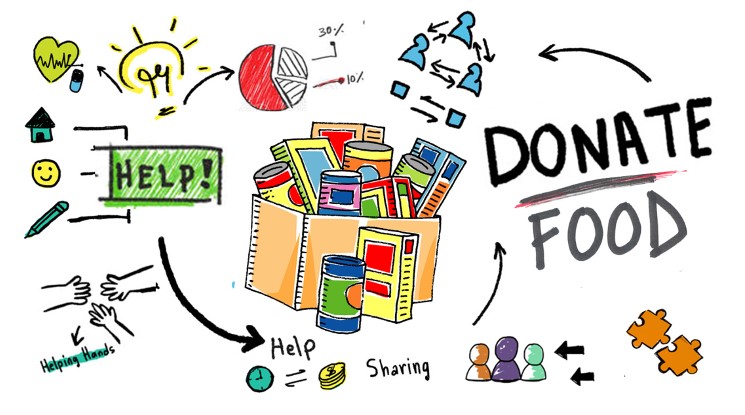 30%
10%
HELP!
DONATE
FOOD
Helping Hands
Help
Sharing
$